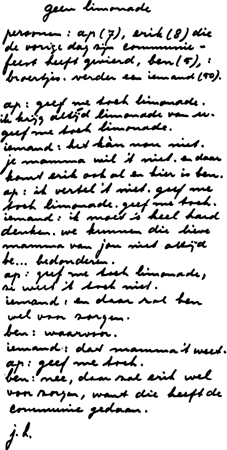 geen limonade
personen: ap (7), erik (8) die
de vorige dag zijn communie-
feest heeft gevierd, ben (5), :
broertjes. verder een iemand (50).
ap: geef me toch limonade.
ik krijg altijd limonade van u.
geef me toch limonade.
iemand: het kàn nou niet.
je mamma wil 't niet. en daar
komt erik ook al en hier is ben.
ap: ik vertel 't niet. geef me
toch limonade. geef me toch.
iemand: ik moet is heel hard
denken. we kunnen die lieve
mamma van jou niet altijd
be... bedonderen.
ap: geef me toch limonade,
ze weet 't toch niet.
iemand: en daar zal ben
wel voor zorgen.
ben: waarvoor.
iemand: dat mamma 't weet.
ap: geef me toch.
ben: nee, daar zal erik wel
voor zorgen, want die heeft de
communie gedaan.
j.h.